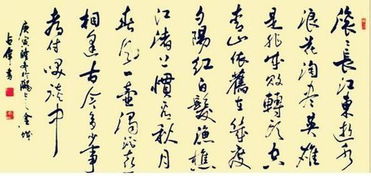 滚々長江東逝水
浪花淘盡英雄
是非成敗轉頭空
青山依舊在幾度
夕陽紅白髮漁樵
江渚上慣看秋月
春風一壺濁酒喜
相逢古今多少事
都付笑談中
庚寅
書